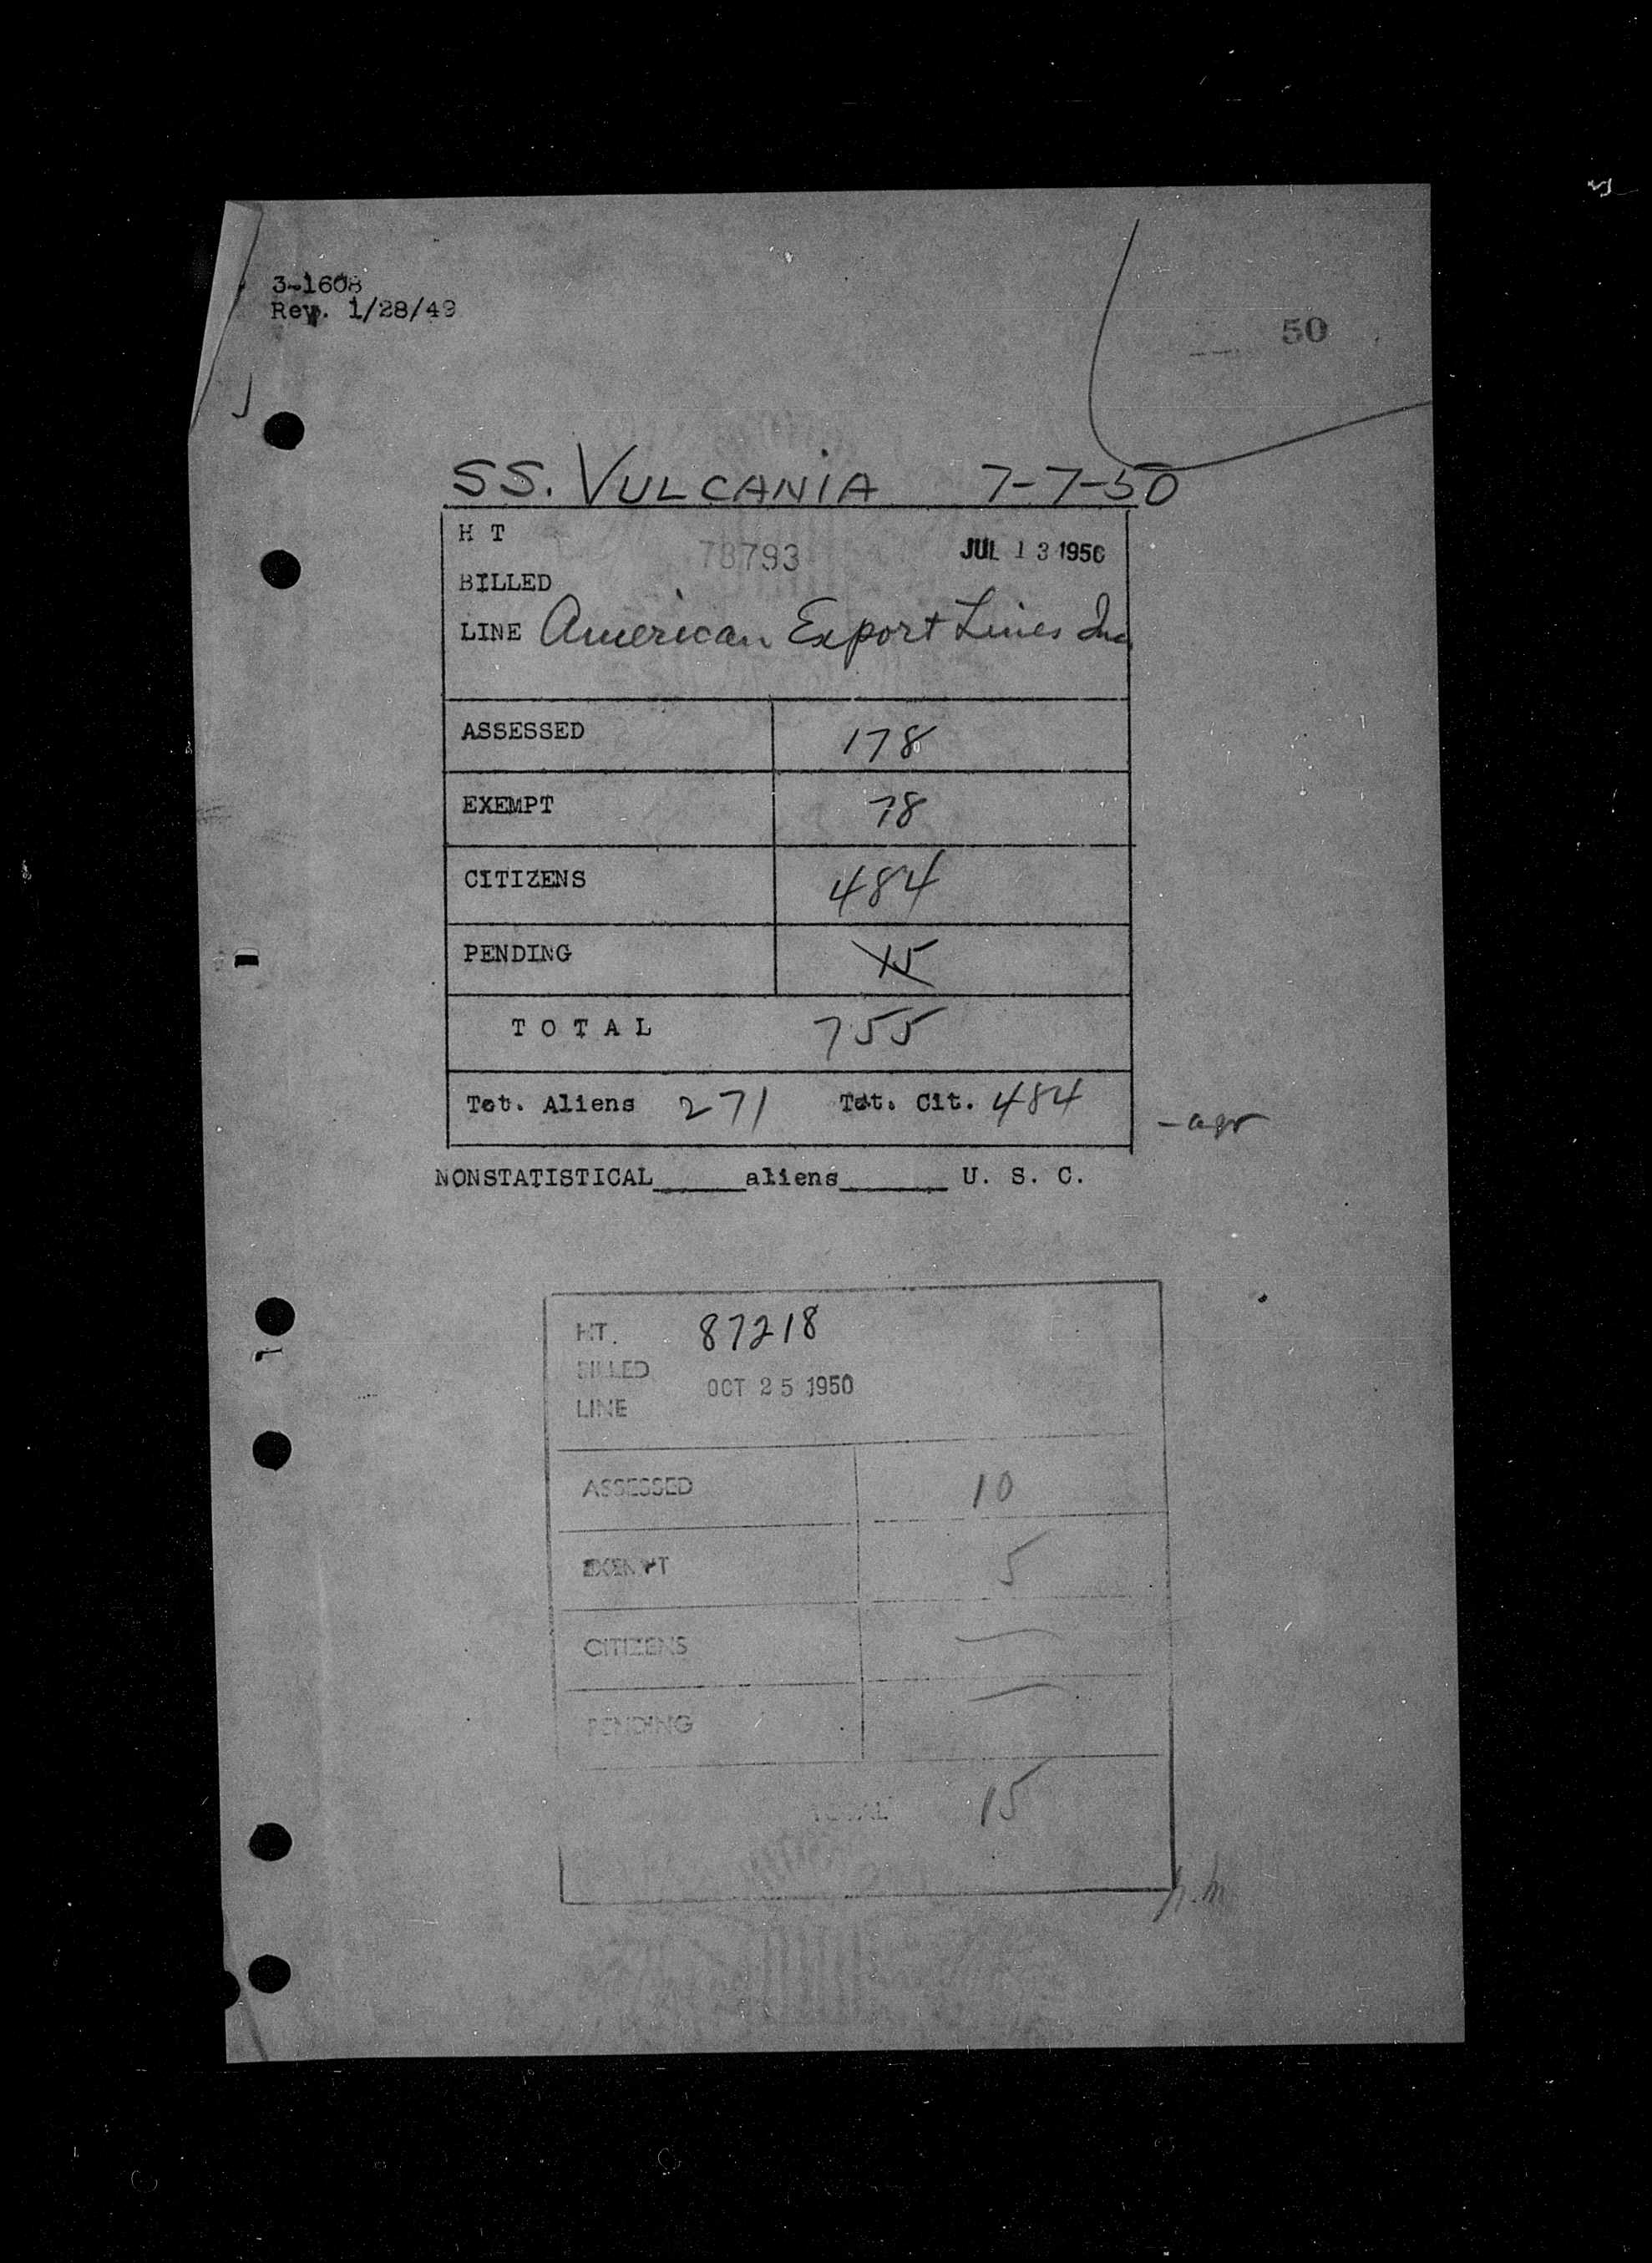 3-1608
Rev. 1/28/49
50
SS. VULCANIA 7-7-50
H T 78793 JUL 13 1950
BILLED
LINE American Export Lines Inc
ASSESSED 178
EXEMPT 78
CITIZENS 484
PENDING 15
TOTAL 755
Tot. Aliens 271 Tot. Cit. 484
NONSTATISTICAL_____aliens______ U. S. C.
HT. 87218
BILLED OCT 25 1950
LINE
ASSESSED 10
EXEMPT 5
CITIZENS —
PENDING —
TOTAL 15